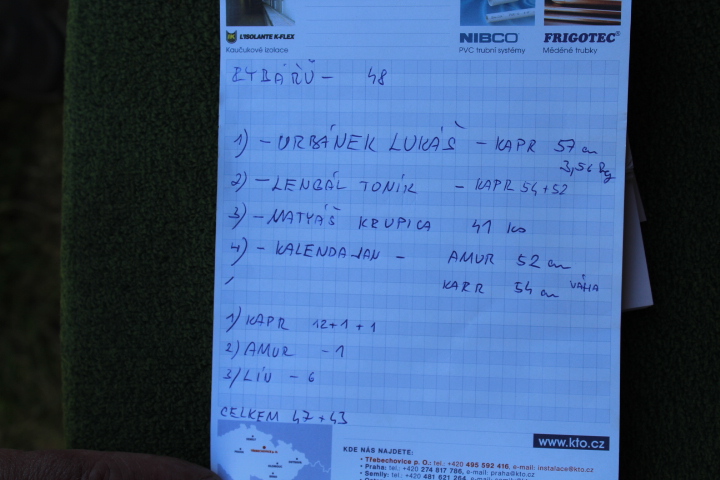 L'ISOLANTE K-FLEX
Kaučukové izolace
NIBCO
PVC trubní systémy
FRIGOTEC®
Měděné trubky
RYBÁŘŮ - 48
1) - URBÁNEK LUKÁŠ - KAPR 57 cm
3,56 kg
2) - LENGÁL TONÍK - KAPR 54+52
3) - MATYÁŠ KRUPICA 41 ks
4) - KALENDA JAN - AMUR 52 cm
KAPR 54 cm VÁHA
1) KAPR 12+1+1
2) AMUR - 1
3) LÍN - 6
CELKEM 47+43
www.kto.cz
KDE NÁS NAJDETE:
• Třebechovice p. O.: tel.: +420 495 592 416, e-mail: instalace@kto.cz
• Praha: tel.: +420 274 817 786, e-mail: praha@kto.cz
• Semily: tel.: +420 481 621 264,